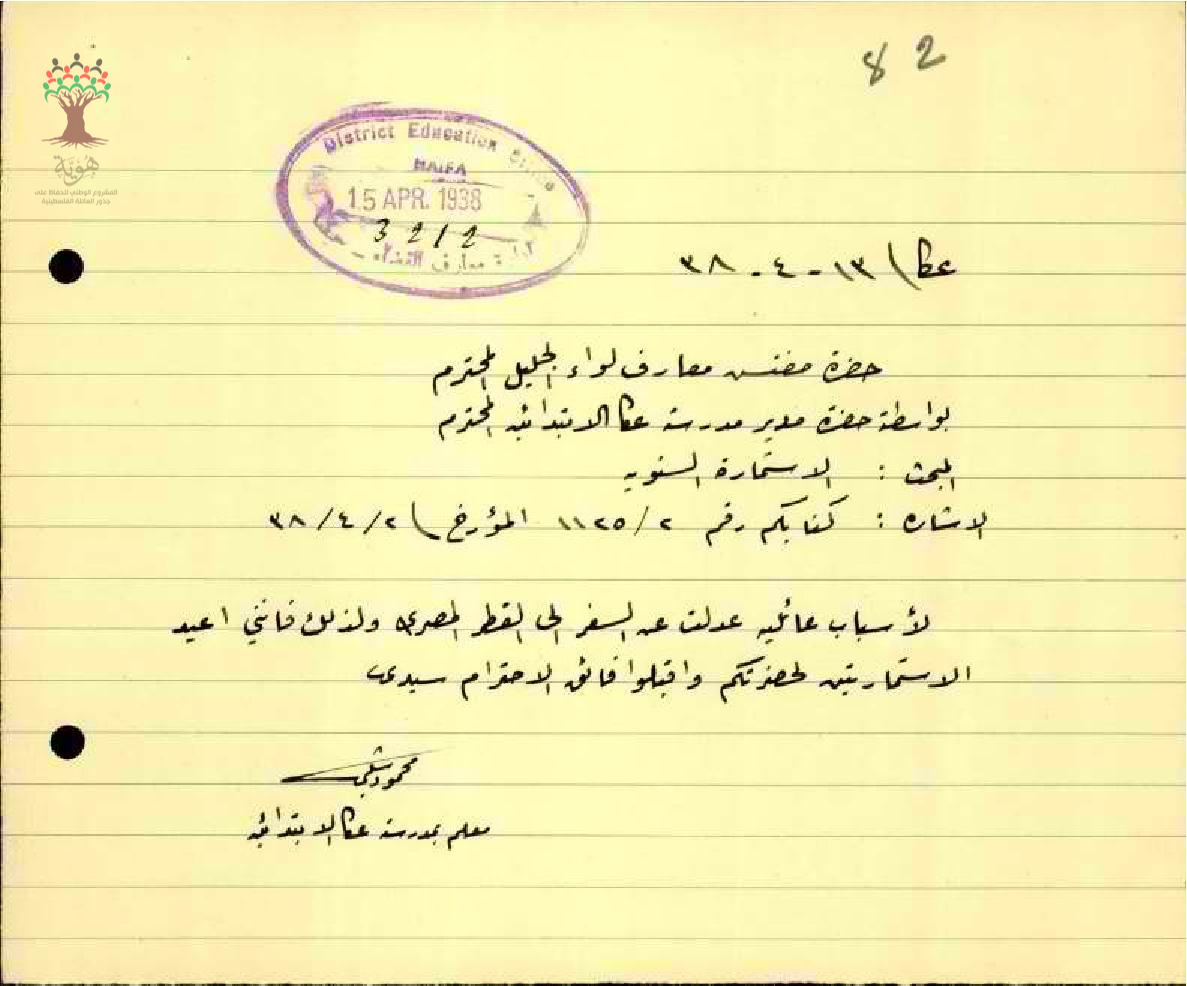 82
هوية
المشروع الوطني للحفاظ على
جذور العائلة الفلسطينية
District Education Office
HAIFA
15 APR. 1938
32/2
ادارة معارف القضاء - حيفا
عكا \ ١٣ - ٤ - ٣٨
حضرة مفتش معارف لواء الجليل المحترم
بواسطة حضرة مدير مدرسة عكا الابتدائيه المحترم
المبحث : الاستمارة السنويه
الاشاره : كتابكم رقم ٢/ ١١٢٥ المؤرخ \ ٣٨/٤/٢
لأسباب عائليه عدلت عن السفر الى القطر المصري ولذلك فانني اعيد
الاستمارتين لحضرتكم واقبلوا فائق الاحترام سيدي
محمود
معلم بمدرسة عكا الابتدائيه